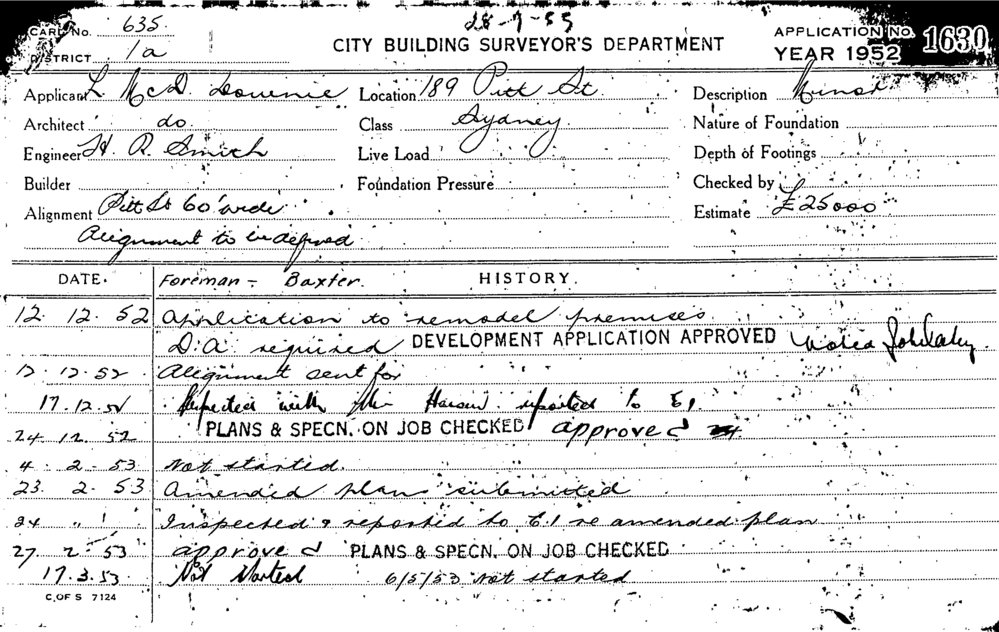 28-7-55
CARD No. 635
CITY BUILDING SURVEYOR'S DEPARTMENT
APPLICATION No. 1630
DISTRICT 1a
YEAR 1952
Applicant L McD. Downie Location 189 Pitt St. Description Minor
Architect do. Class Sydney Nature of Foundation
Engineer H. R. Smith Live Load Depth of Footings
Builder Foundation Pressure Checked by
Alignment Pitt St 60' wide Estimate £25000
Alignment to be defined
DATE. Foreman - Baxter. HISTORY.
12. 12. 52 Application to remodel premises
D.A. required DEVELOPMENT APPLICATION APPROVED
12.12.52 Alignment sent for
17.12.52 Inspected with Mr reported to E1.
24.12.52 PLANS & SPECN. ON JOB CHECKED approved
4. 2. 53 Not started.
23. 2. 53 Amended plans submitted
24 " Inspected & reported to E.1 re amended plan
27 2. 53 approved PLANS & SPECN. ON JOB CHECKED
17.3.53 Not started 6/5/53 not started
C. OF S 7124